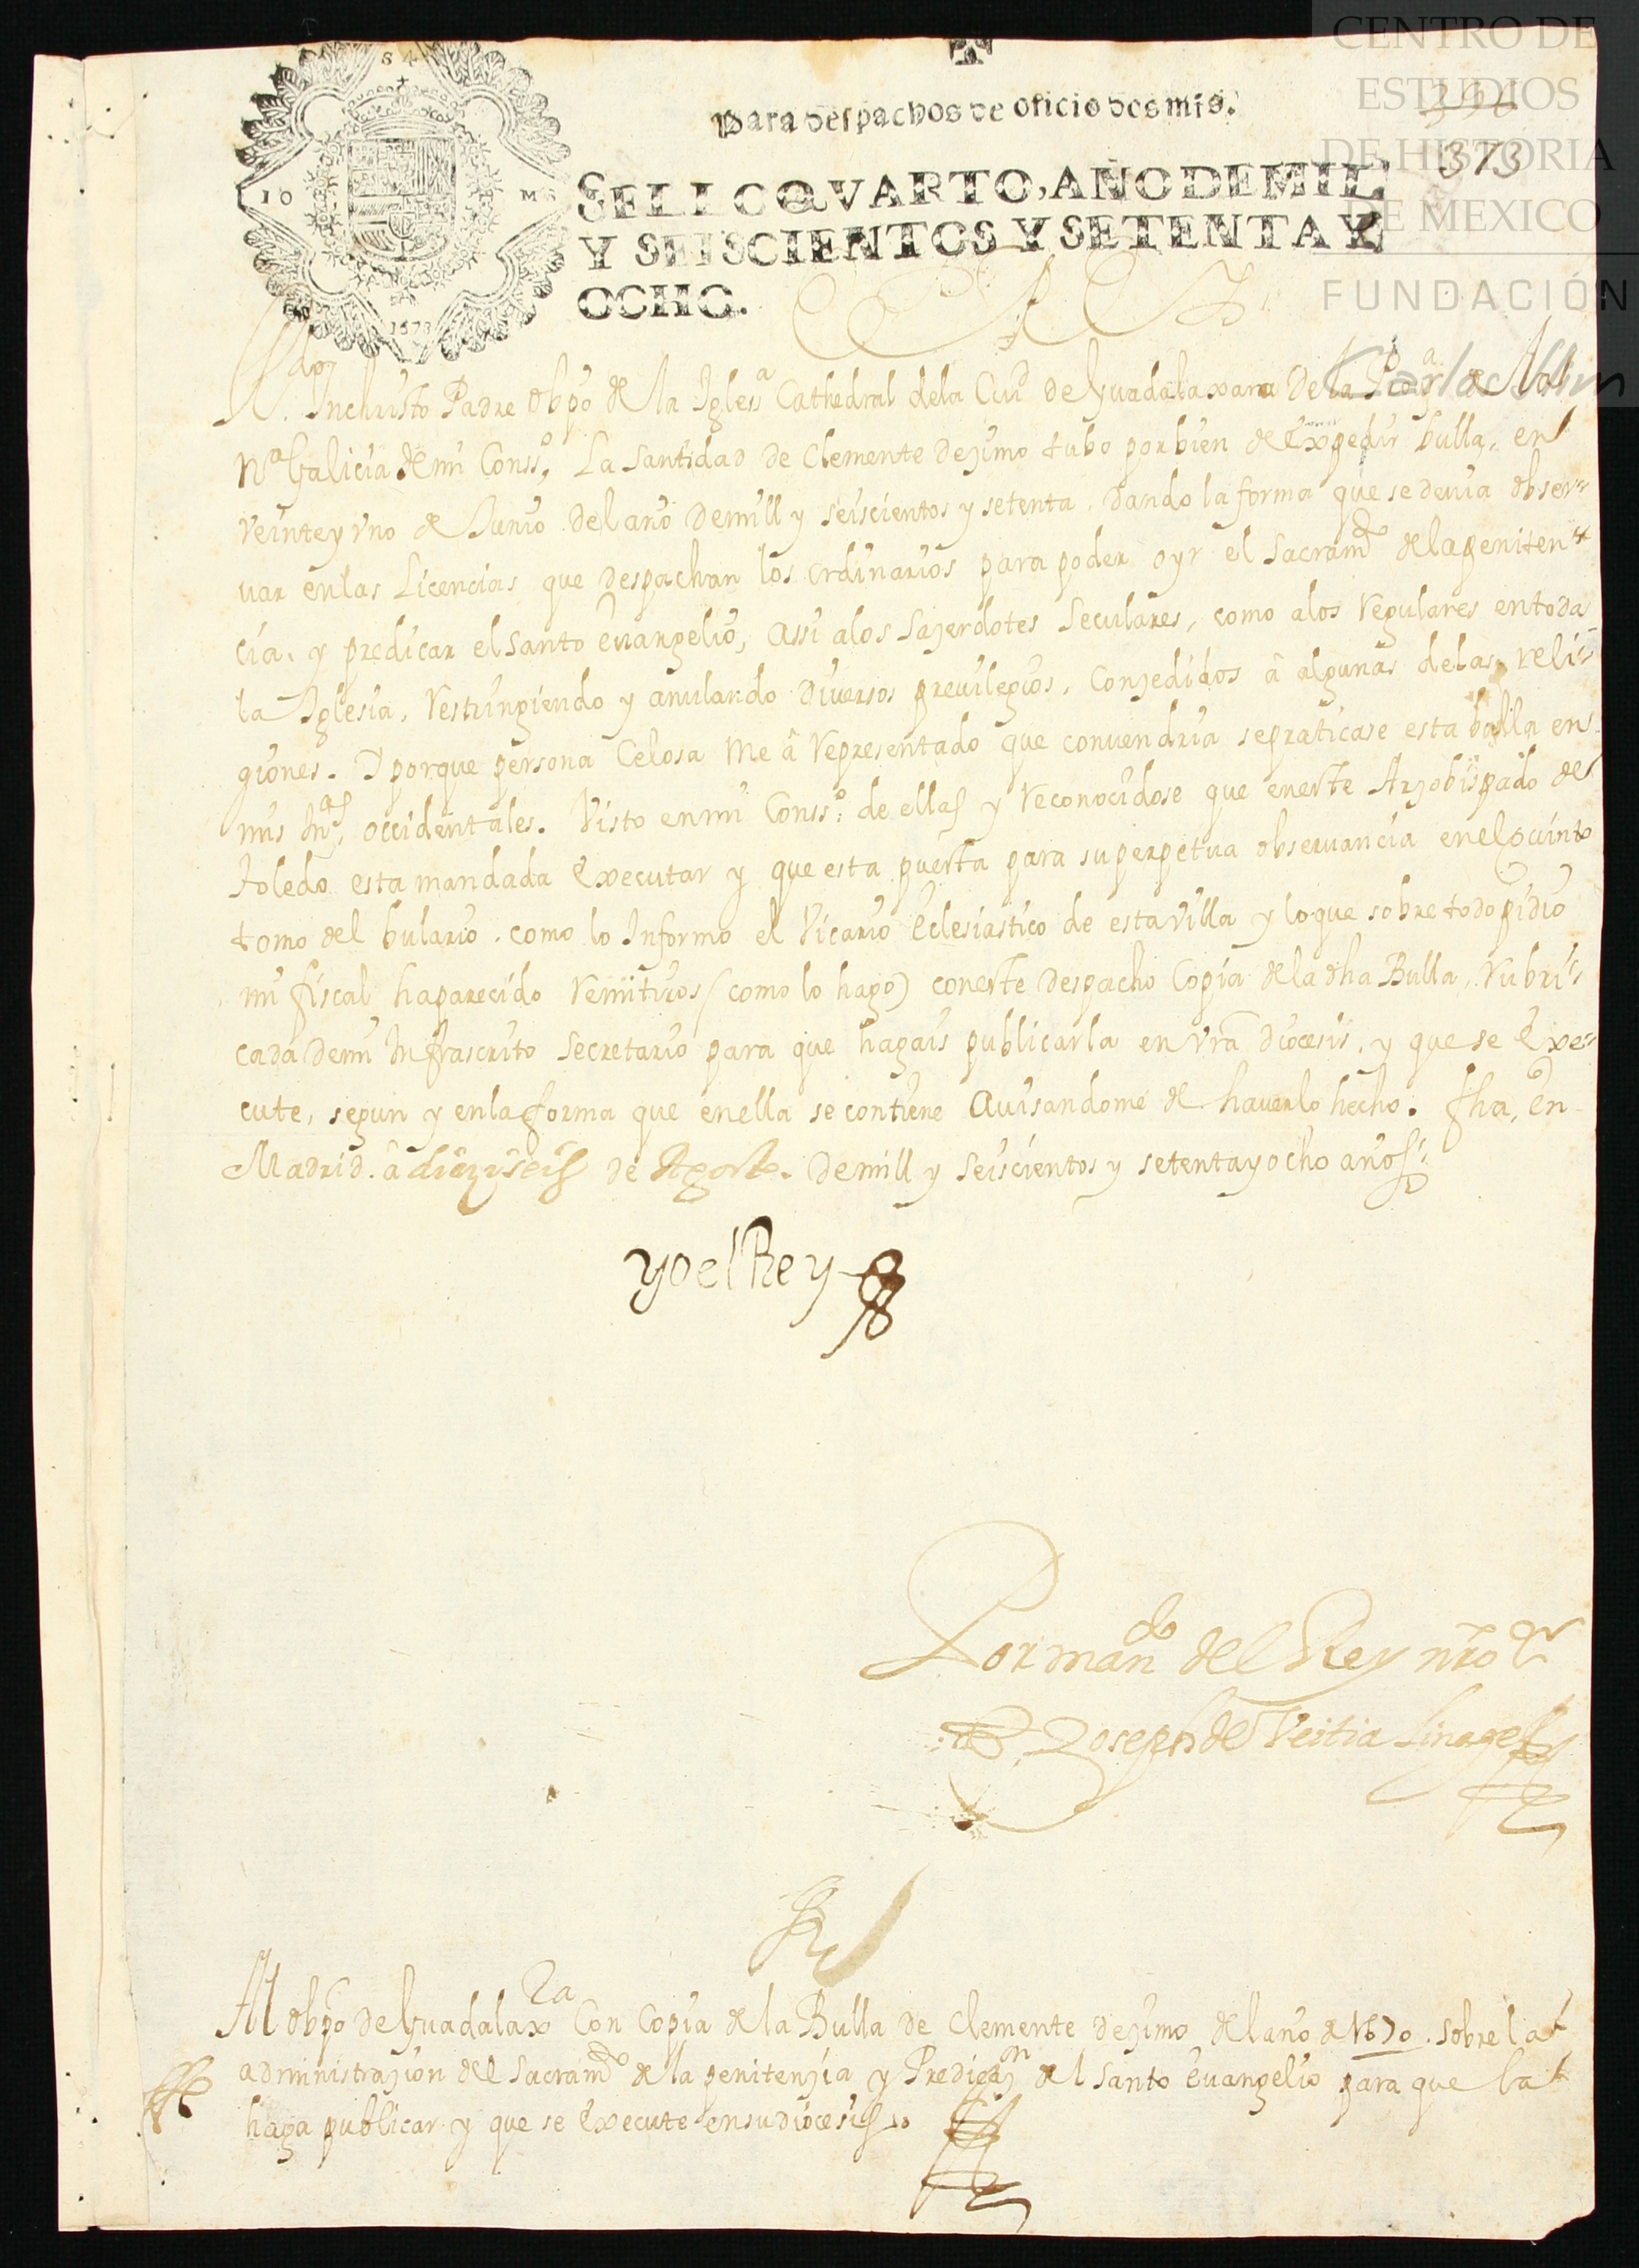 CENTRO DE
ESTUDIOS
DE HISTORIA
DE MEXICO
FUNDACIÓN
Carlos Slim
373
Para despachos de oficio dos mrs.
SELLO QVARTO, AÑO DE MIL
Y SEISCIENTOS Y SETENTA Y
OCHO.
1678
El Rey
R. Inchristo Padre Obpo de la Iglesa Cathedral dela Ciud de Guadalaxara De la Proa de la
Na Galicia de mi Consso, La Santidad de Clemente Dezimo tubo por bien de expedir bulla, en
veinte y vno de Junio del año de mill y seiscientos y setenta, Dando la forma que se deuia obser-
uar en las Licencias que despachan los ordinarios para poder oyr el Sacramto de la peniten-
cia, y predicar el santo euangelio, assi alos sazerdotes Seculares, como alos regulares en toda
la Iglesia, restringiendo y anulando diuersos preuilegios, Conzedidos â algunas delas reli-
giones. Y porque persona Celosa me â representado que conuendria se praticase esta bulla en
mis Inas occidentales. Visto en mi Consso: de ellas y reconocidose que en este Arzobispado de
Toledo esta mandada executar y que esta puesta para su perpetua obseruancia en el quinto
tomo del bulario, como lo Informo el Vicario Eclesiastico de esta Villa y lo que sobre todo pidio
mi fiscal, ha parecido remitiros (como lo hago) con este despacho Copia de la dha Bulla, rubri-
cada de mi Infrascrito Secretario para que hagais publicarla en vra diocesis, y que se exe-
cute, segun y en la forma que en ella se contiene Auisandome de hauerlo hecho. fha, en
Madrid. â diez y seis de Agosto. De mill y Seiscientos y setenta y ocho años
yo el Rey
Por mando del Rey nro sr
D Joseph de Veitia Linage
Al obpo de Guadalaxra Con Copia de la Bulla de Clemente dezimo del año de 1670. sobre la
administrazion del Sacramto de la penitenzia y Predicazn del Santo Euangelio para que la
haga publicar y que se execute en su diocesis